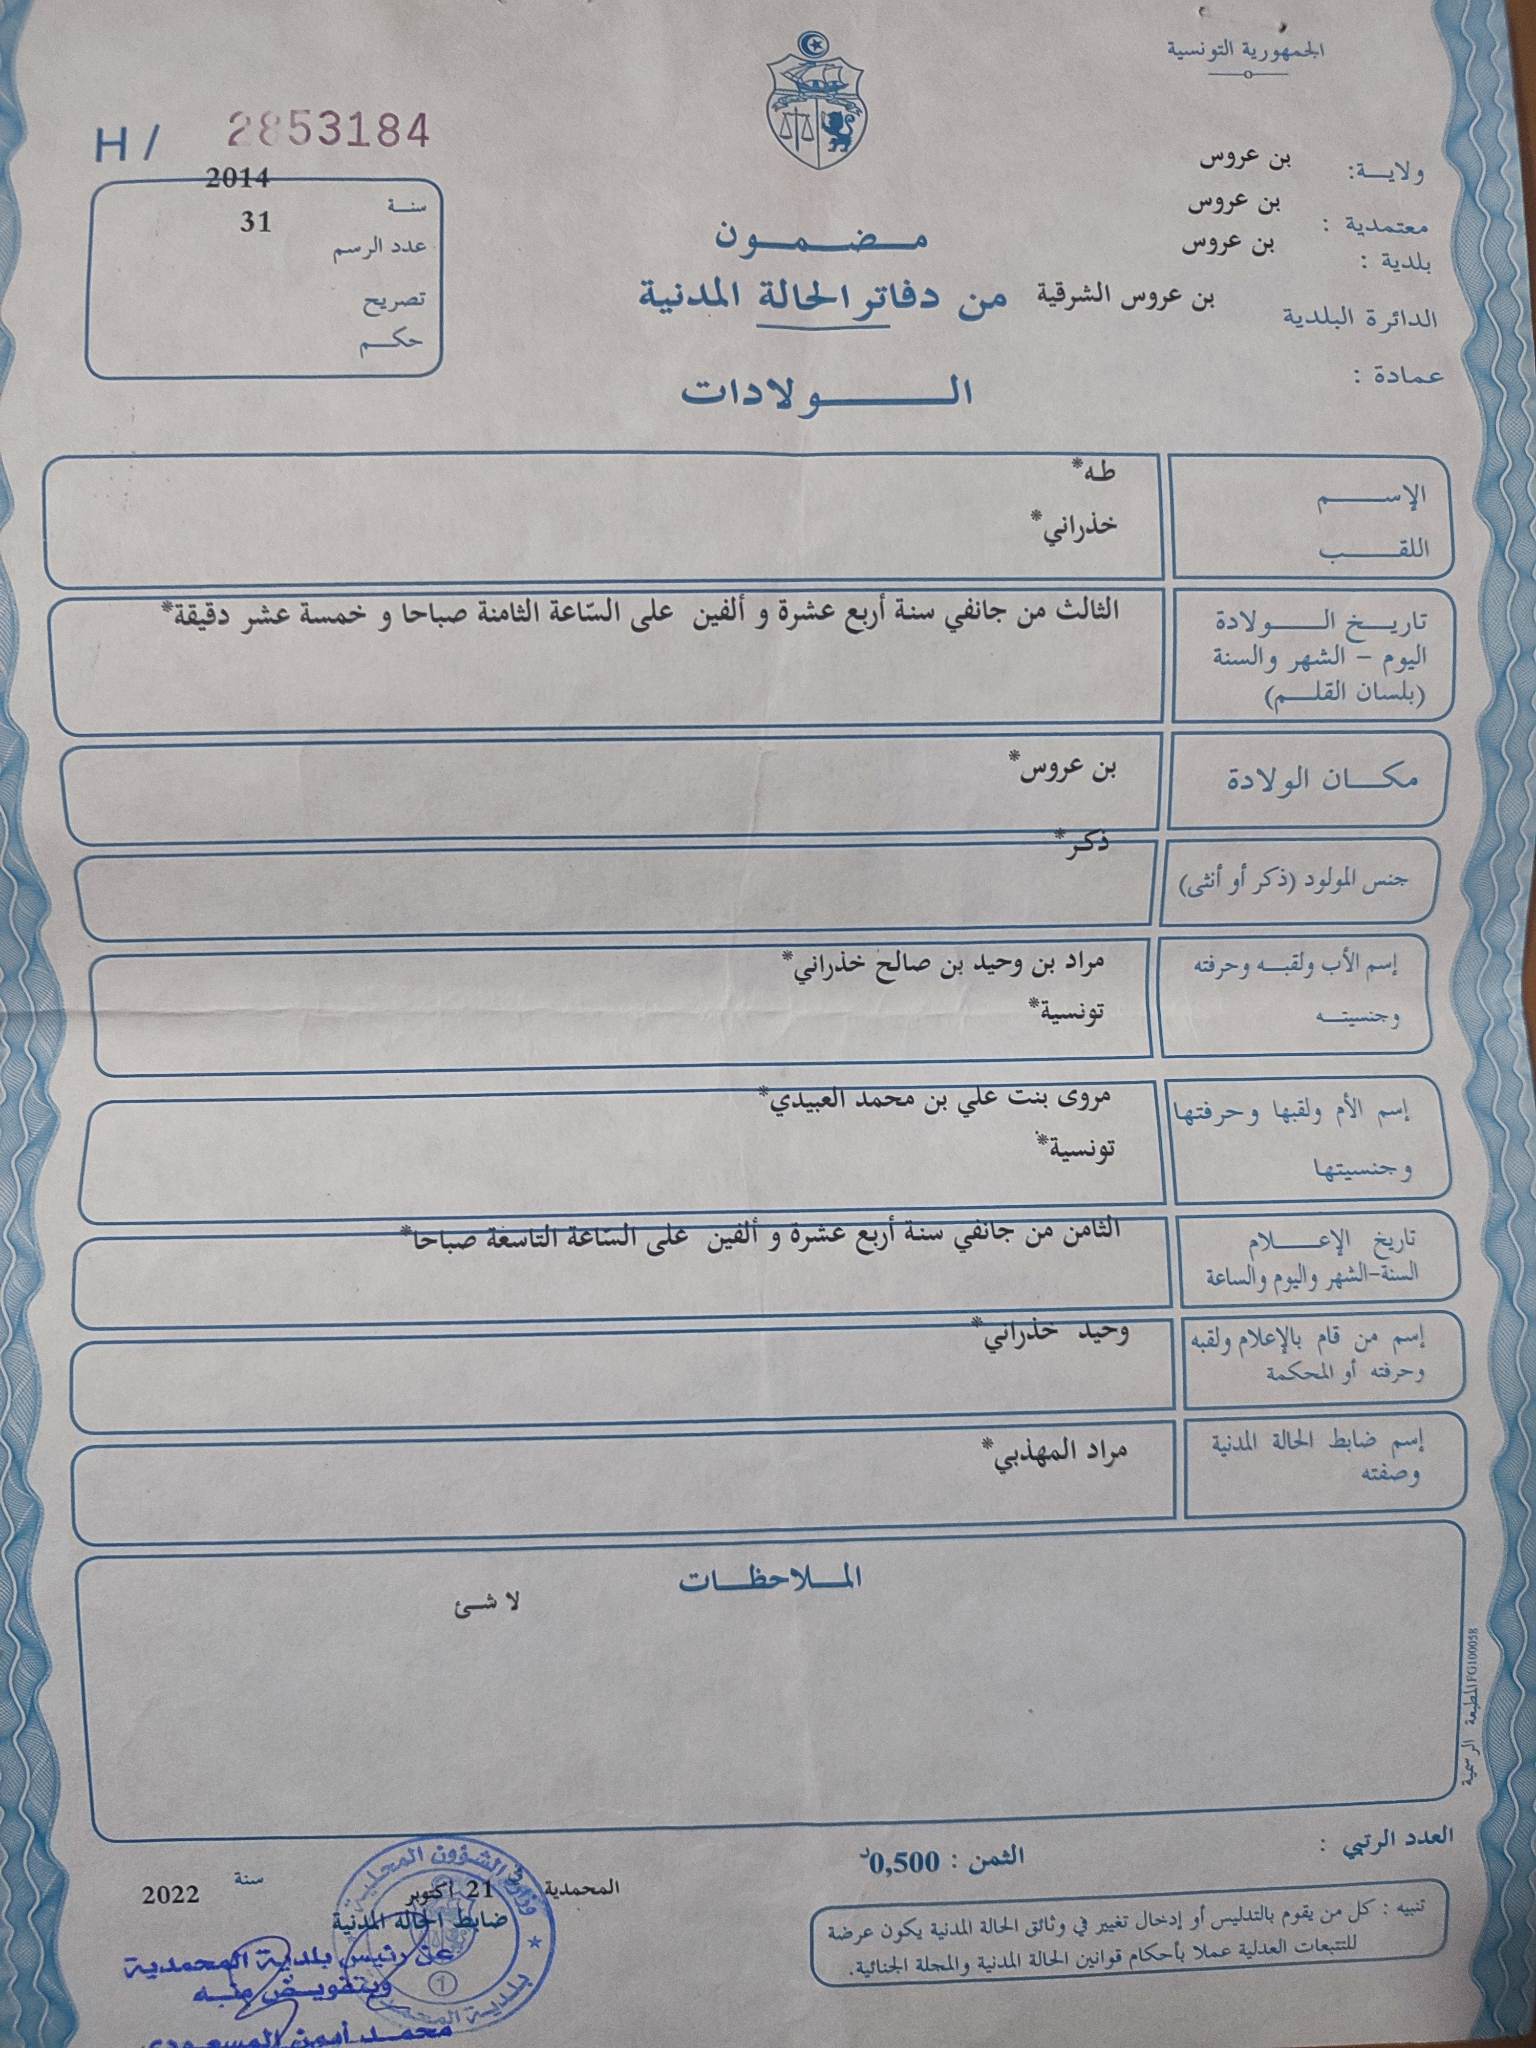 الجمهورية التونسية
ولاية: بن عروس
معتمدية : بن عروس
بلدية : بن عروس
الدائرة البلدية بن عروس الشرقية
عمادة :
H / 2853184
سنة 2014
عدد الرسم 31
تصريح
حكم
مضمون
من دفاتر الحالة المدنية
الولادات
الإسم طه*
اللقب خذراني*
تاريخ الولادة
اليوم - الشهر والسنة
(بلسان القلم)
الثالث من جانفي سنة أربع عشرة و ألفين على السّاعة الثامنة صباحا و خمسة عشر دقيقة*
مكان الولادة بن عروس*
جنس المولود (ذكر أو أنثى) ذكر*
إسم الأب ولقبه وحرفته مراد بن وحيد بن صالح خذراني*
وجنسيته تونسية*
إسم الأم ولقبها وحرفتها مروى بنت علي بن محمد العبيدي*
وجنسيتها تونسية*
تاريخ الإعلام
السنة-الشهر واليوم والساعة
الثامن من جانفي سنة أربع عشرة و ألفين على السّاعة التاسعة صباحا*
إسم من قام بالإعلام ولقبه
وحرفته أو المحكمة
وحيد خذراني*
إسم ضابط الحالة المدنية
وصفته
مراد المهذبي*
الملاحظات
لا شئ
المطبعة الرسمية FG100058
العدد الرتبي :
الثمن : 0,500د
تنبيه : كل من يقوم بالتدليس أو إدخال تغيير في وثائق الحالة المدنية يكون عرضة
للتتبعات العدلية عملا بأحكام قوانين الحالة المدنية والمجلة الجنائية.
المحمدية في 21 أكتوبر سنة 2022
ضابط الحالة المدنية
عن رئيس بلدية المحمدية
وبتفويض منه
محمد أمين المسعودي
وزارة الشؤون المحلية
بلدية المحمدية
1